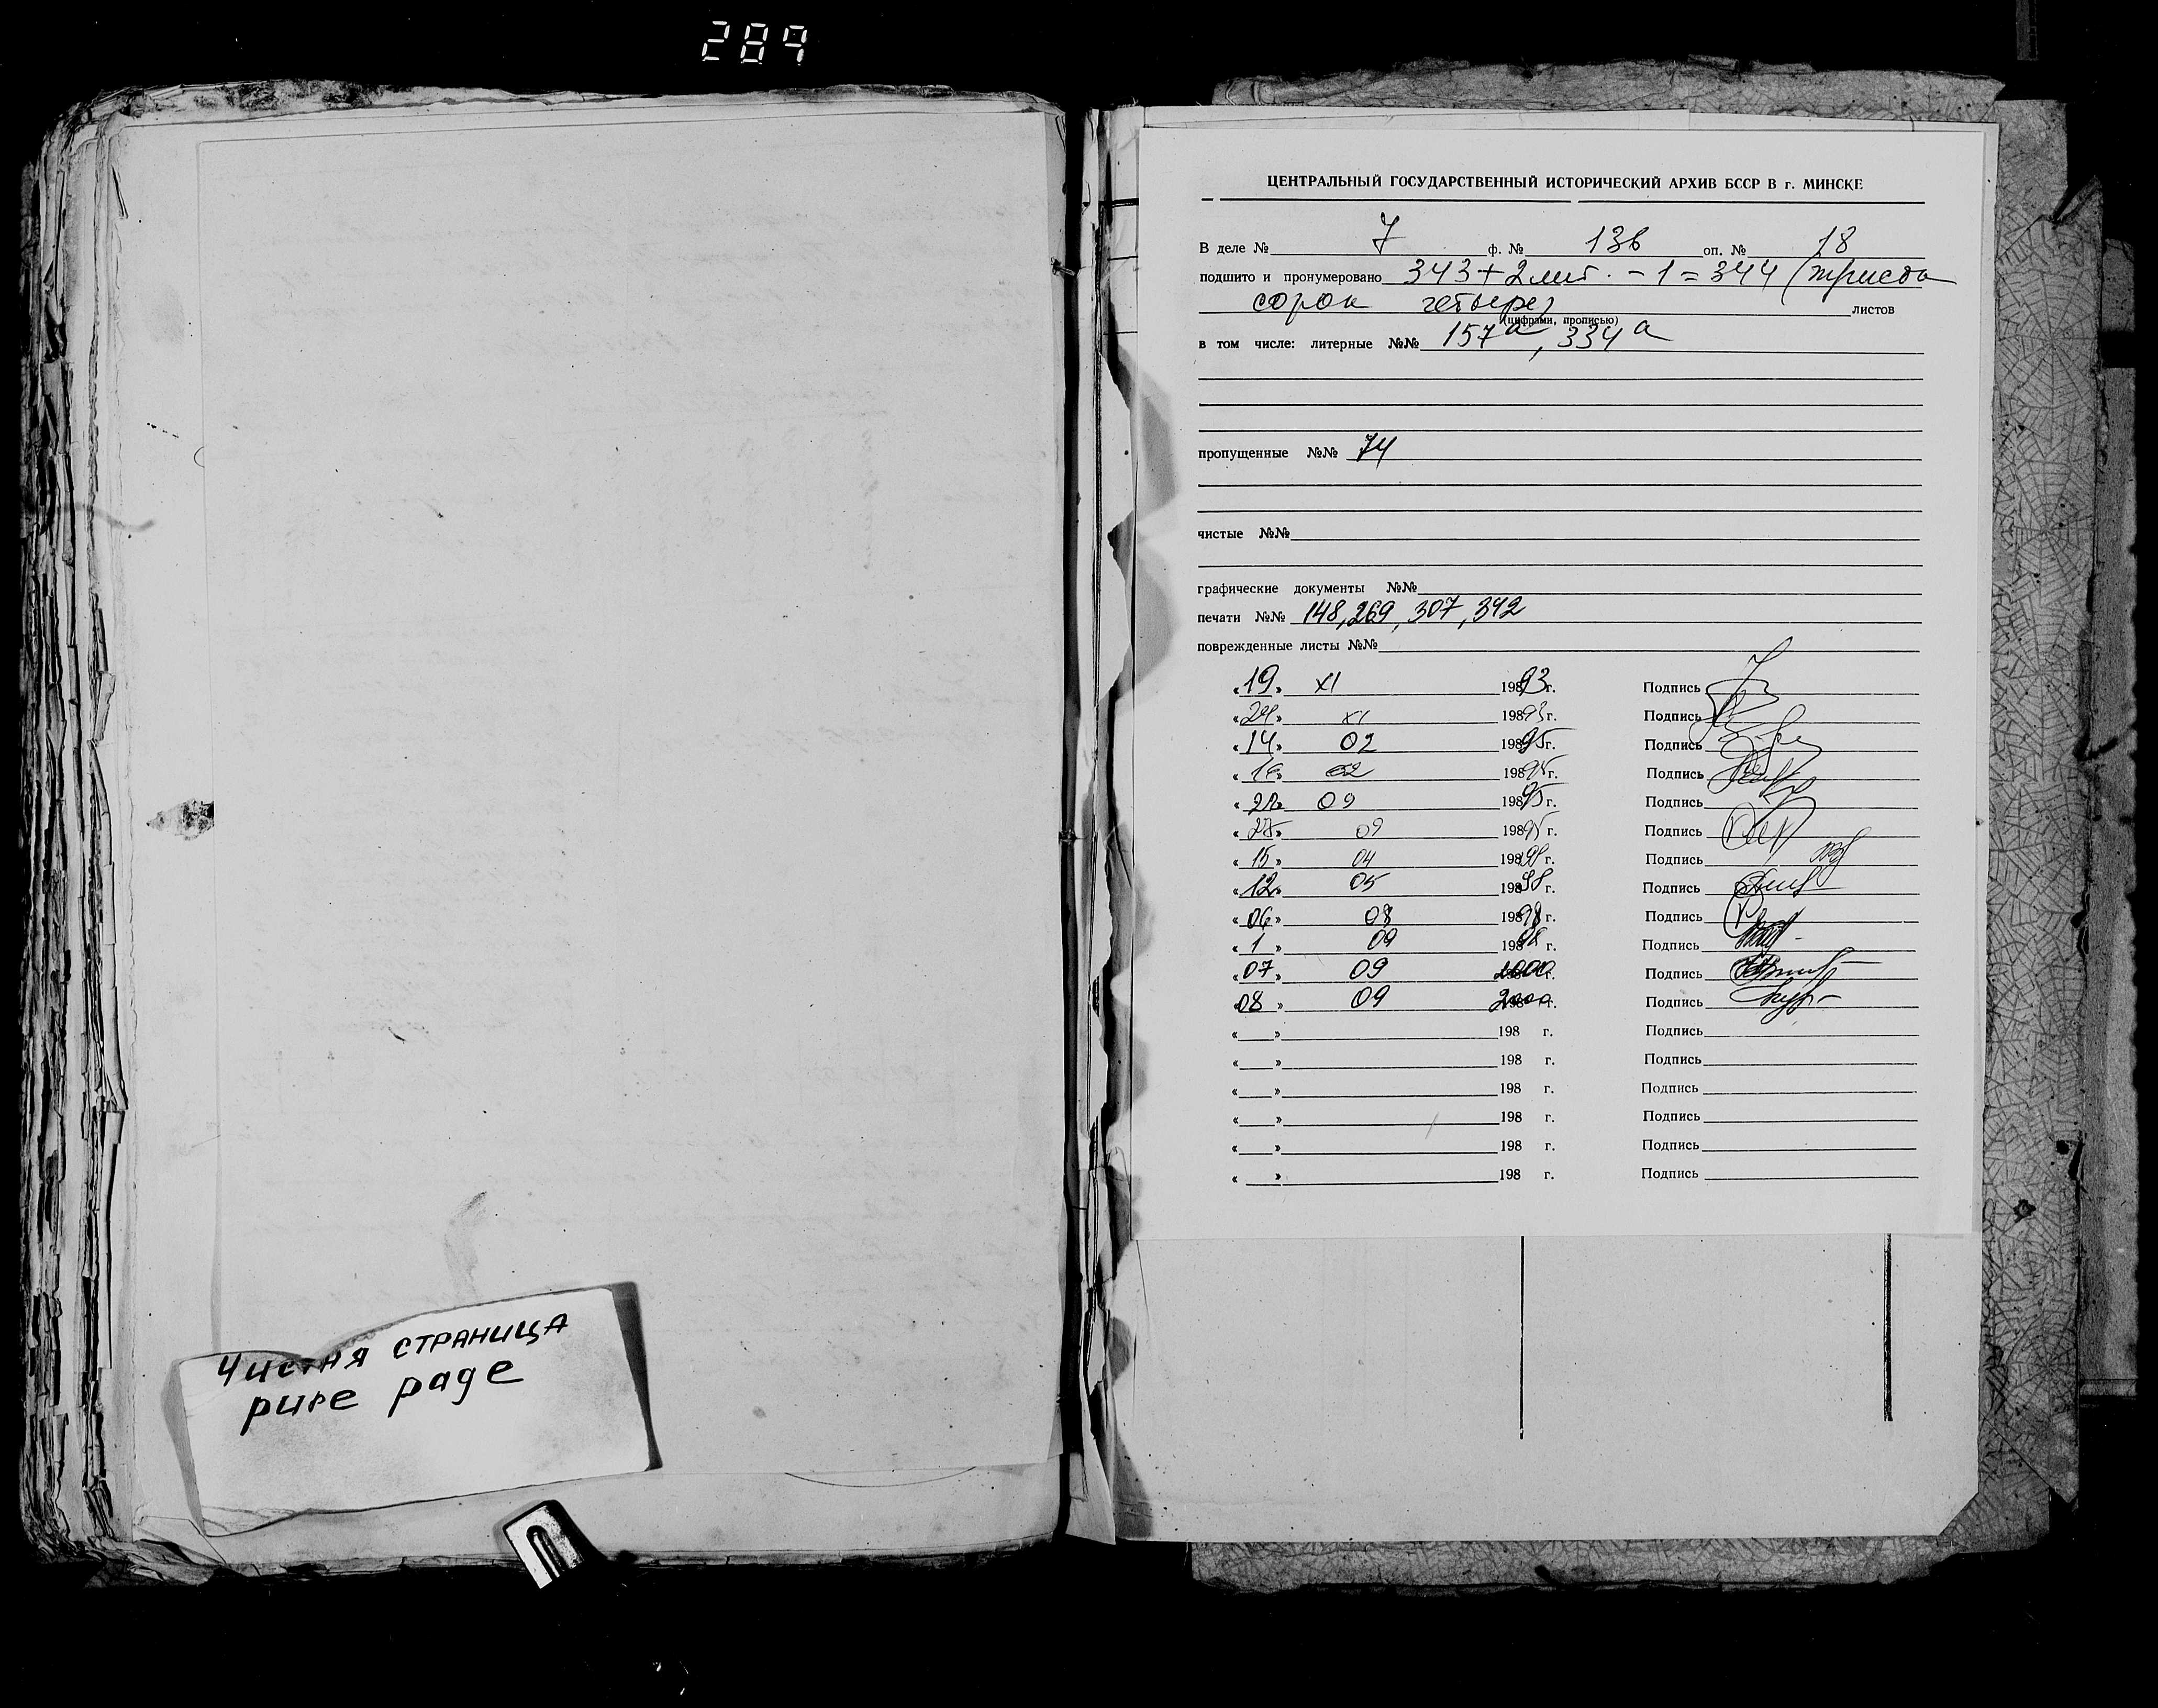 289
Чистая страница
pure page
ЦЕНТРАЛЬНЫЙ ГОСУДАРСТВЕННЫЙ ИСТОРИЧЕСКИЙ АРХИВ БССР В г. МИНСКЕ
В деле № 7 ф. № 136 оп. № 18
подшито и пронумеровано 343+2лит. – 1 = 344 (триста
сорок четыре) листов
(цифрами, прописью)
в том числе: литерные №№ 157а, 334а
пропущенные №№ 74
чистые №№
графические документы №№
печати №№ 148, 269, 307, 342
поврежденные листы №№
«19» XI 1993г. Подпись
«24» XI 1993г. Подпись
«14» 02 1995г. Подпись
02 г. Подпись
09 1995г. Подпись
09 1995г. Подпись
«15» 04 1998г. Подпись
«12» 05 1998г. Подпись
«06» 08 1998г. Подпись
«1» 09 1998г. Подпись
«07» 09 2000г. Подпись
«08» 09 2000г. Подпись
«  » 198 г. Подпись
«  » 198 г. Подпись
«  » 198 г. Подпись
«  » 198 г. Подпись
«  » 198 г. Подпись
«  » 198 г. Подпись